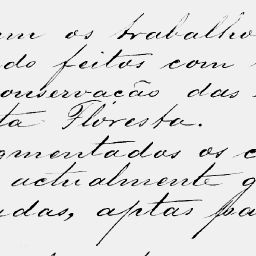 em os trabalho
do feitos com
onservacão das
ta Floresta.
gmentados os c
actualmente g
das, aptas pa